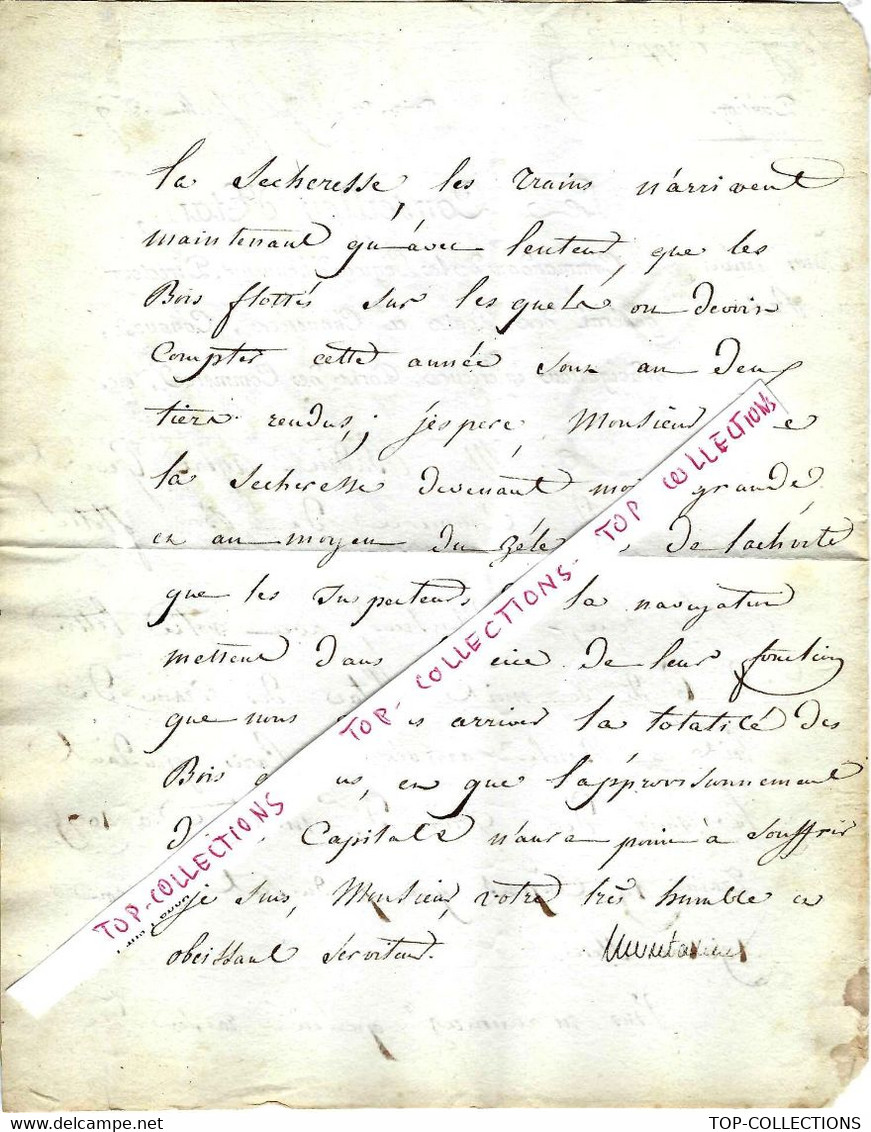 la Secheresse, les trains n'arrivent
maintenant qu'avec lenteur, que les
Bois flottés sur lesquels on devoit
Compter cette année sont au deux
tiers rendus; j'espere, Monsieur e
la Secheresse devenant moi grande
et au moyen du zéle de l'activité
que les Inspecteurs la navigation
mettent dans cice de leur fonction
que nous s arriver la totalité des
Bois us, et que l'approvisionnement
d Capitale n'aura point à Souffrir
je suis, Monsieur, votre très humble et
obeissant Serviteur.
TOP-COLLECTIONS TOP- COLLECTIONS- TOP COLLECTIONS
TOP-COLLECTIONS